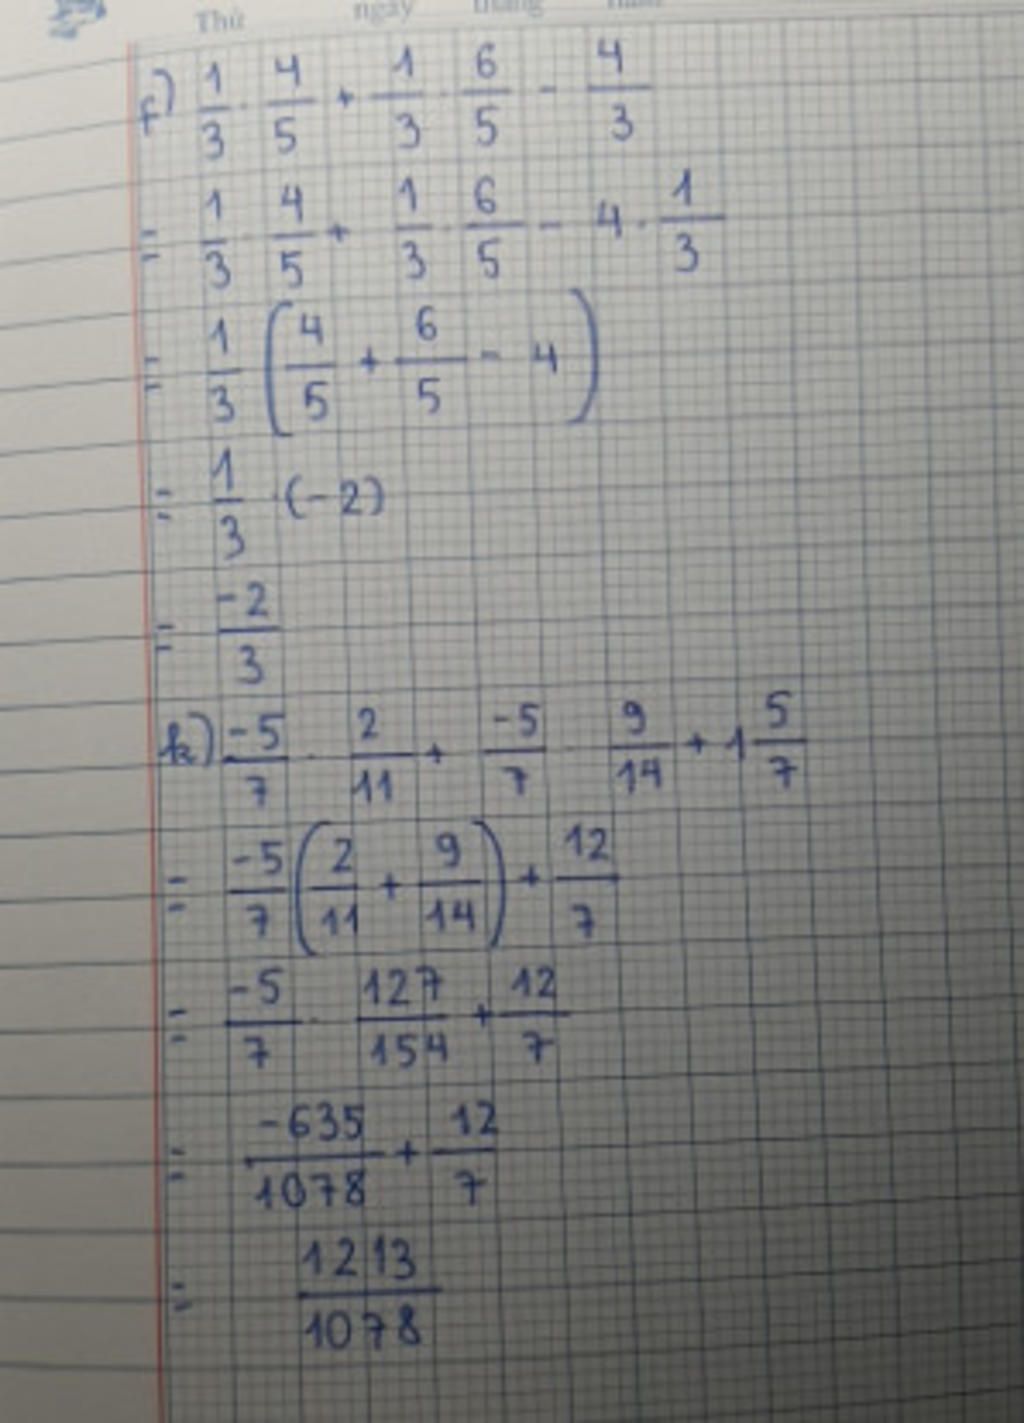 Thứ ngày tháng năm
f) 1/3 · 4/5 + 1/3 · 6/5 - 4/3
= 1/3 · 4/5 + 1/3 · 6/5 - 4 · 1/3
= 1/3 (4/5 + 6/5 - 4)
= 1/3 · (-2)
= -2/3
k) -5/7 · 2/11 + -5/7 · 9/14 + 1 5/7
= -5/7 (2/11 + 9/14) + 12/7
= -5/7 · 127/154 + 12/7
= -635/1078 + 12/7
= 1213/1078